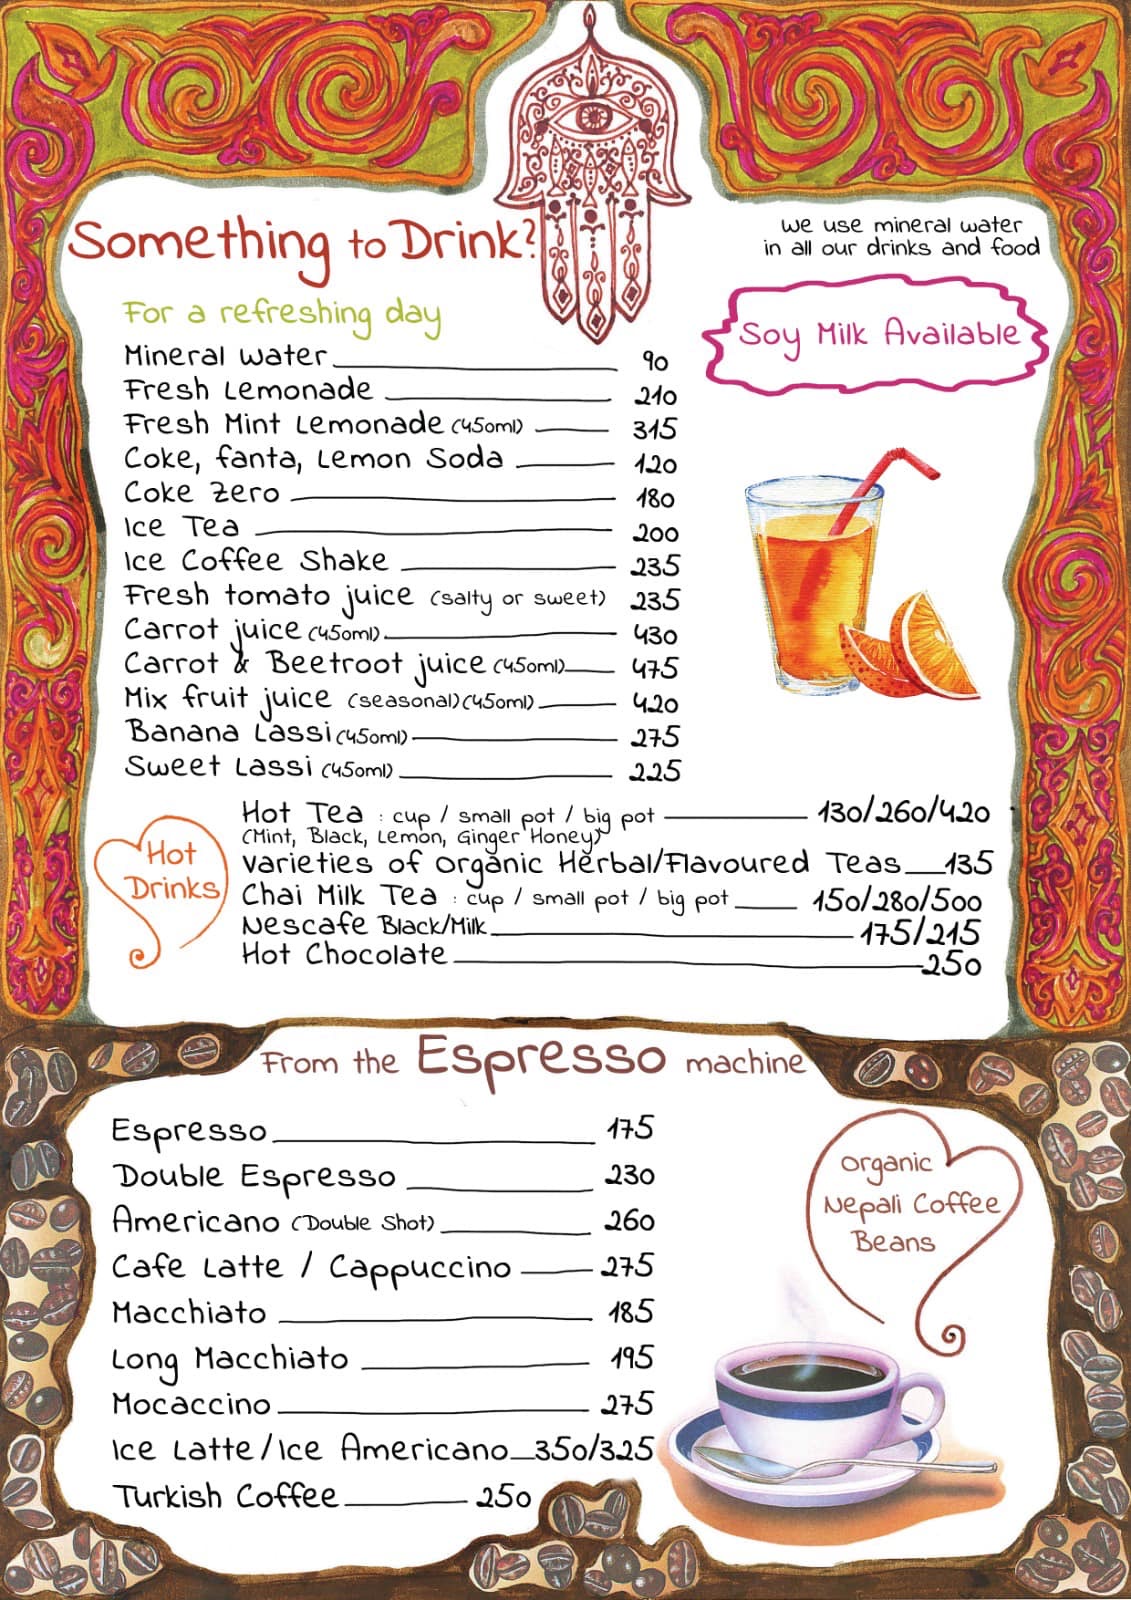 Something to Drink?
we use mineral water
in all our drinks and food
Soy Milk Available
For a refreshing day
Mineral water 90
Fresh Lemonade 210
Fresh Mint Lemonade (450ml) 315
Coke, fanta, Lemon Soda 120
Coke Zero 180
Ice Tea 200
Ice Coffee Shake 235
Fresh tomato juice (salty or sweet) 235
Carrot juice (450ml) 430
Carrot & Beetroot juice (450ml) 475
Mix fruit juice (seasonal) (450ml) 420
Banana Lassi (450ml) 275
Sweet Lassi (450ml) 225
Hot Drinks
Hot Tea : cup / small pot / big pot 130/260/420
(Mint, Black, Lemon, Ginger Honey)
varieties of organic Herbal/Flavoured Teas 135
Chai Milk Tea : cup / small pot / big pot 150/280/500
Nescafe Black/Milk 175/215
Hot Chocolate 250
From the Espresso machine
Espresso 175
Double Espresso 230
Americano (Double Shot) 260
Cafe Latte / Cappuccino 275
Macchiato 185
Long Macchiato 195
Mocaccino 275
Ice Latte/Ice Americano 350/325
Turkish Coffee 250
organic
Nepali Coffee
Beans